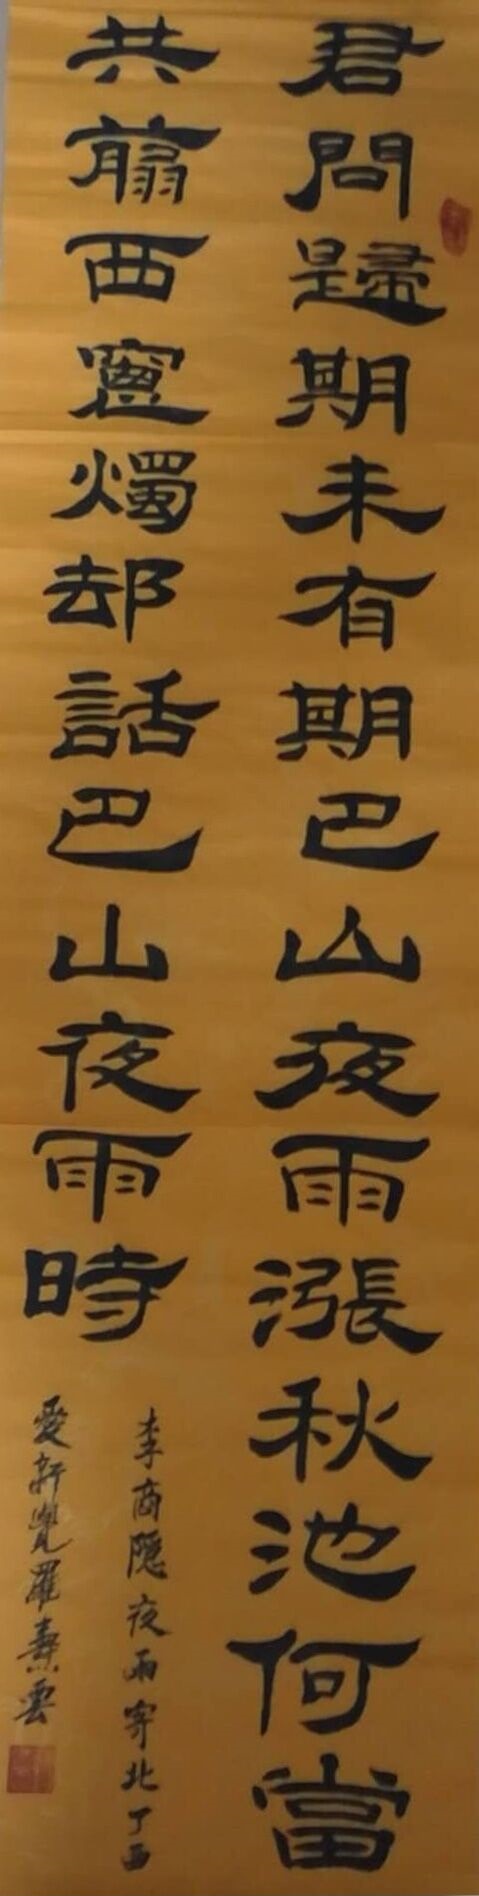 君問歸期未有期巴山夜雨漲秋池何當
共翦西窻燭却話巴山夜雨時
李商隐夜雨寄北丁酉
愛新覺羅燾雲